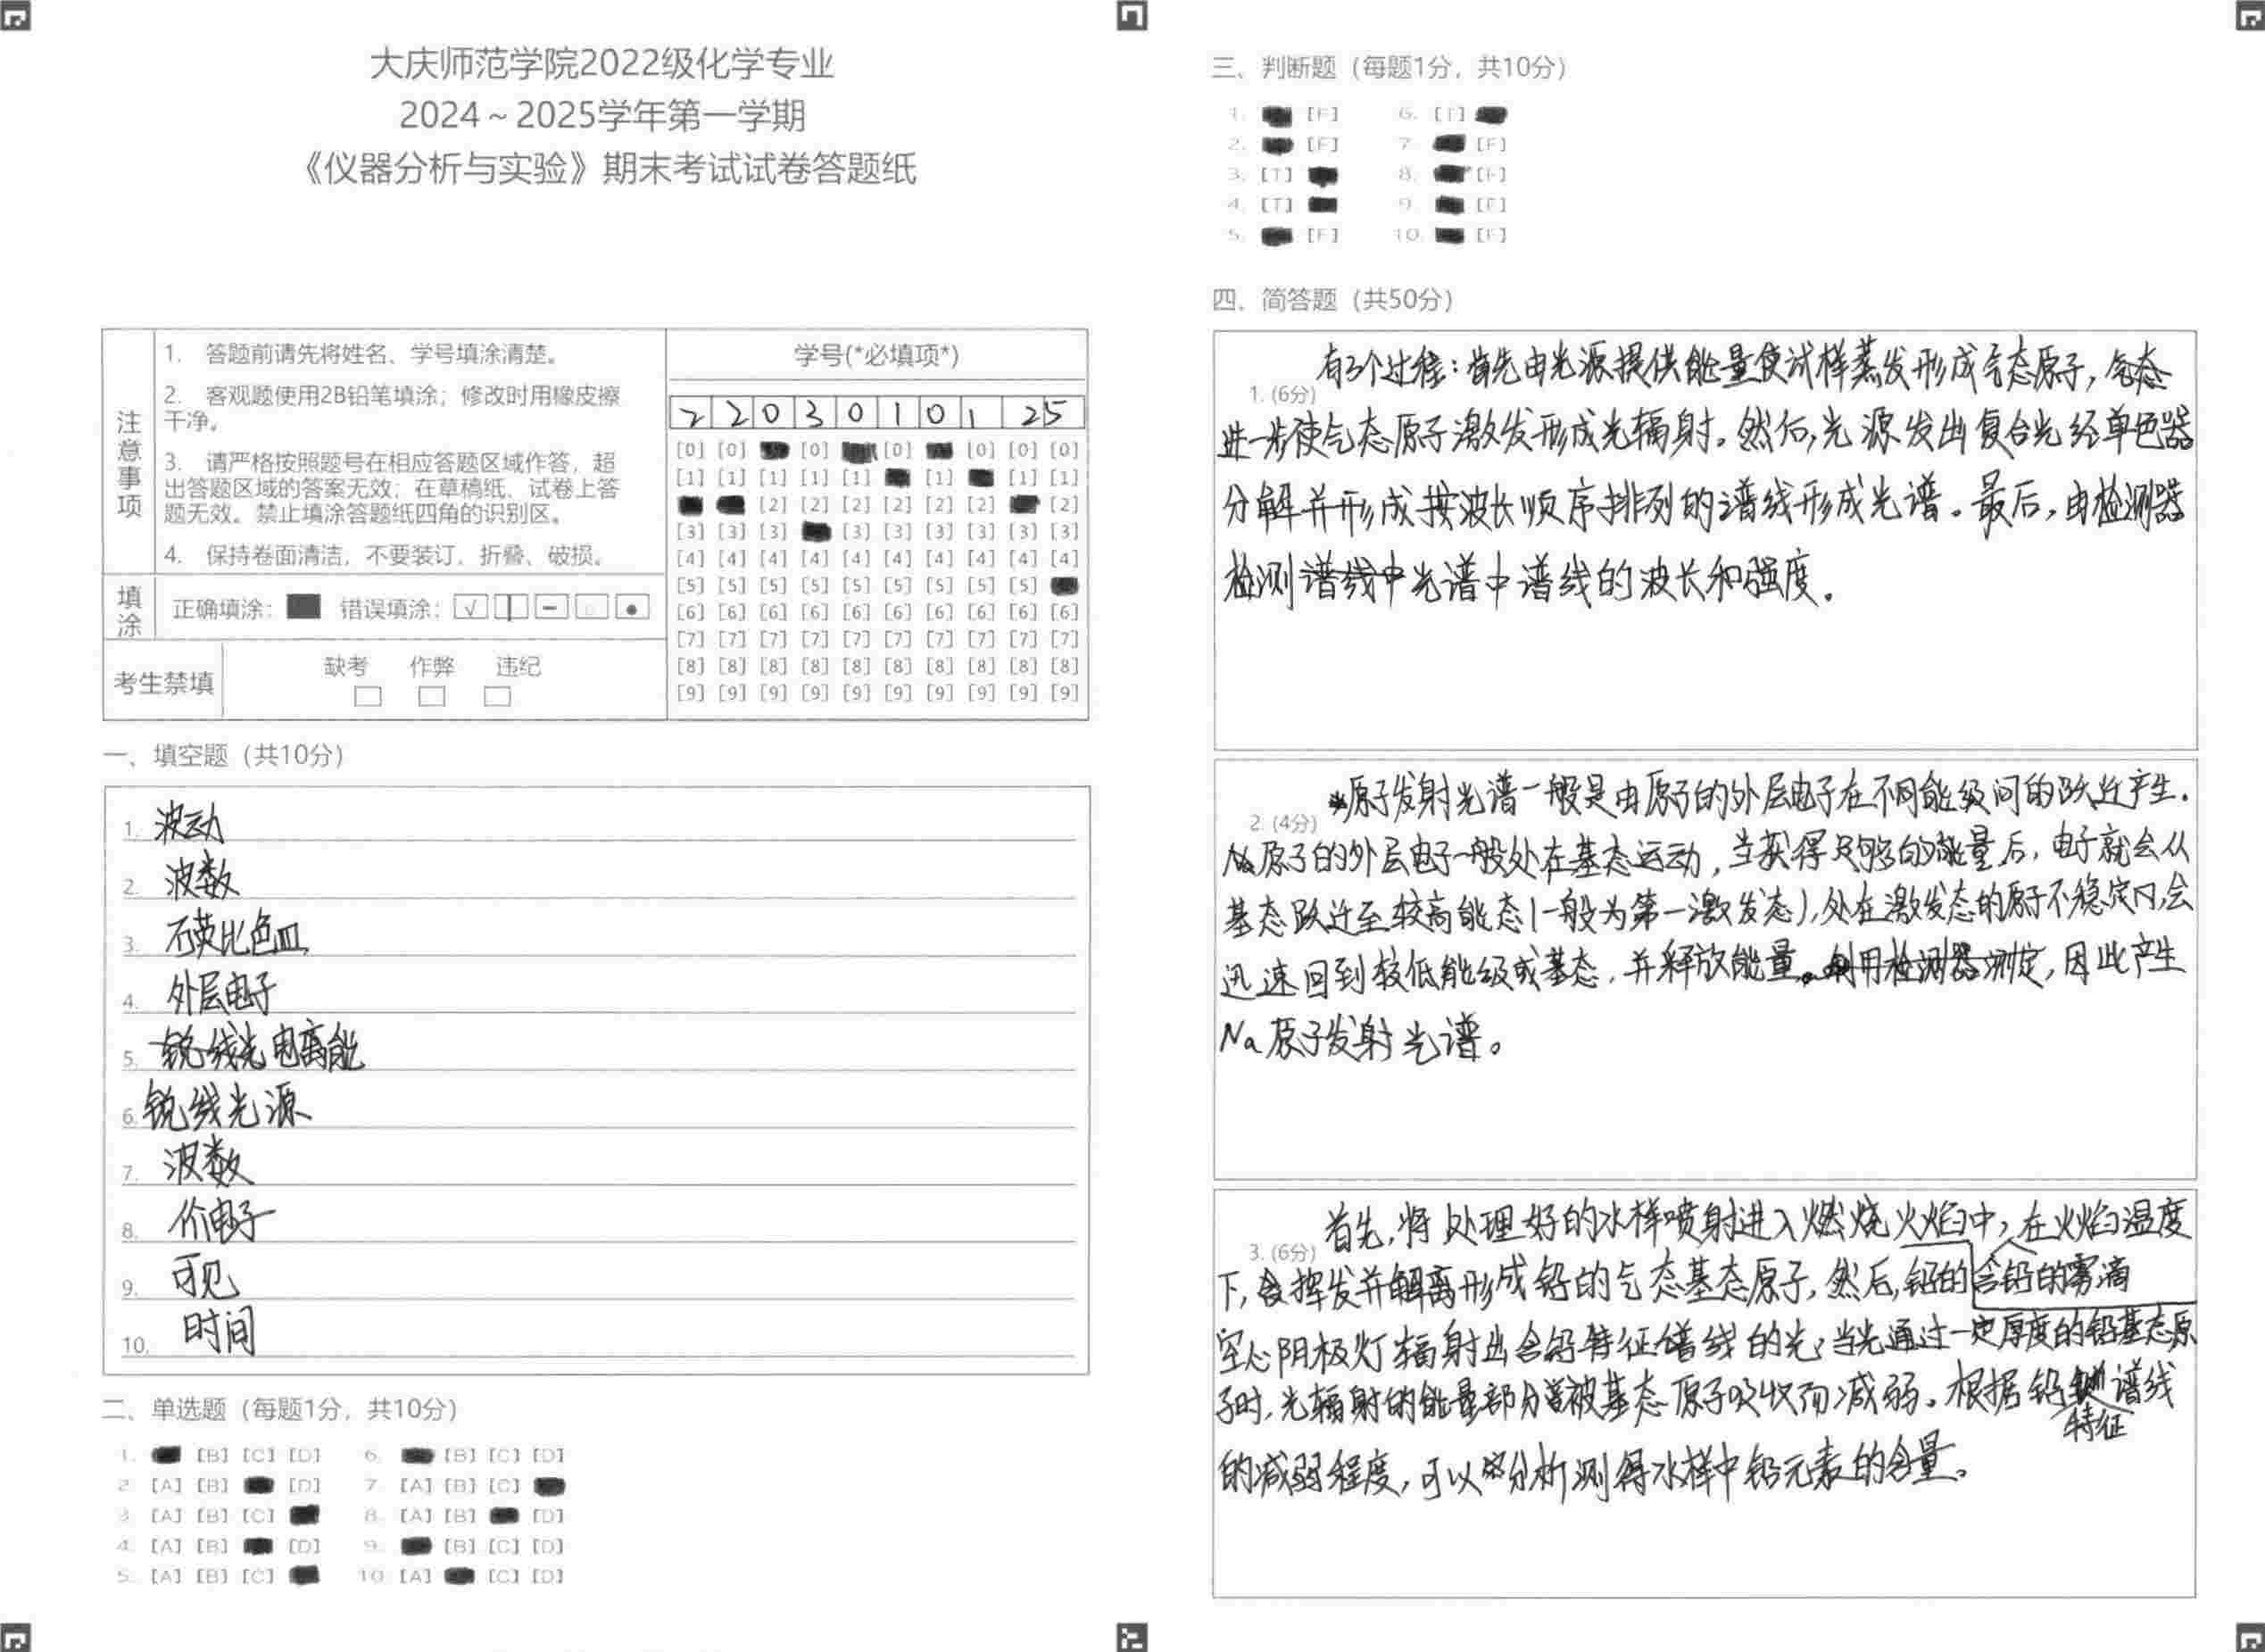 大庆师范学院2022级化学专业
2024～2025学年第一学期
《仪器分析与实验》期末考试试卷答题纸
注意事项
1. 答题前请先将姓名、学号填涂清楚。
2. 客观题使用2B铅笔填涂；修改时用橡皮擦
干净。
3. 请严格按照题号在相应答题区域作答，超
出答题区域的答案无效；在草稿纸、试卷上答
题无效。禁止填涂答题纸四角的识别区。
4. 保持卷面清洁，不要装订、折叠、破损。
填涂
正确填涂： 错误填涂：
考生禁填
缺考 作弊 违纪
学号(*必填项*)
2 2 0 3 0 1 0 1 2 5
[0] [0] [0] [0] [0] [0] [0]
[1] [1] [1] [1] [1] [1] [1] [1]
[2] [2] [2] [2] [2] [2] [2]
[3] [3] [3] [3] [3] [3] [3] [3] [3]
[4] [4] [4] [4] [4] [4] [4] [4] [4] [4]
[5] [5] [5] [5] [5] [5] [5] [5] [5]
[6] [6] [6] [6] [6] [6] [6] [6] [6] [6]
[7] [7] [7] [7] [7] [7] [7] [7] [7] [7]
[8] [8] [8] [8] [8] [8] [8] [8] [8] [8]
[9] [9] [9] [9] [9] [9] [9] [9] [9] [9]
一、填空题（共10分）
1. 波动
2. 波数
3. 石英比色皿
4. 外层电子
5. 锐线光电离能
6. 锐线光源
7. 波数
8. 价电子
9. 可见
10. 时间
二、单选题（每题1分，共10分）
1. [B] [C] [D] 6. [B] [C] [D]
2. [A] [B] [D] 7. [A] [B] [C]
3. [A] [B] [C] 8. [A] [B] [D]
4. [A] [B] [D] 9. [B] [C] [D]
5. [A] [B] [C] 10. [A] [C] [D]
三、判断题（每题1分，共10分）
1. [F] 6. [T]
2. [F] 7. [F]
3. [T] 8. [F]
4. [T] 9. [F]
5. [F] 10. [F]
四、简答题（共50分）
1. (6分)
有3个过程：首先由光源提供能量使试样蒸发形成气态原子，气态
进一步使气态原子激发形成光辐射。然后，光源发出复合光经单色器
分解并形成按波长顺序排列的谱线形成光谱。最后，由检测器
检测谱线中光谱中谱线的波长和强度。
2. (4分)
原子发射光谱一般是由原子的外层电子在不同能级间的跃迁产生。
Na原子的外层电子一般处在基态运动，当获得足够的能量后，电子就会从
基态跃迁至较高能态(一般为第一激发态)，处在激发态的原子不稳定，会
迅速回到较低能级或基态，并释放能量。利用检测器测定，因此产生
Na原子发射光谱。
3. (6分)
首先，将处理好的水样喷射进入燃烧火焰中，在火焰温度
下，会挥发并解离形成铅的气态基态原子，然后，铅的
含铅的雾滴
空心阴极灯辐射出含铅特征谱线的光，当光通过一定厚度的铅基态原
子时，光辐射的能量部分被基态原子吸收而减弱。根据铅谱线
特征
的减弱程度，可以分析测得水样中铅元素的含量。